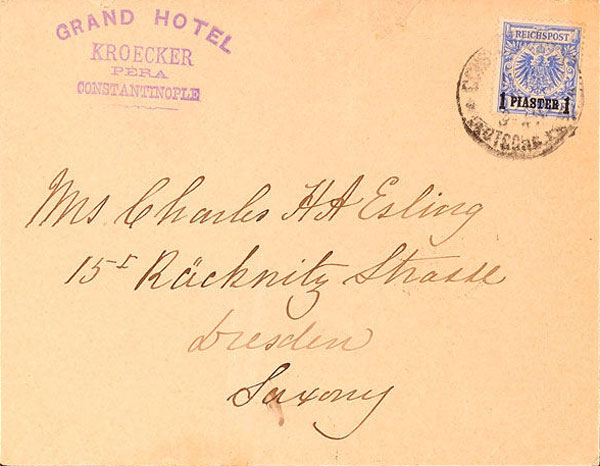 GRAND HOTEL
KROECKER
PERA
CONSTANTINOPLE
REICHSPOST
1 PIASTER 1
Mrs Charles H A Esling
15 I Räcknitz Strasse
Dresden
Saxony